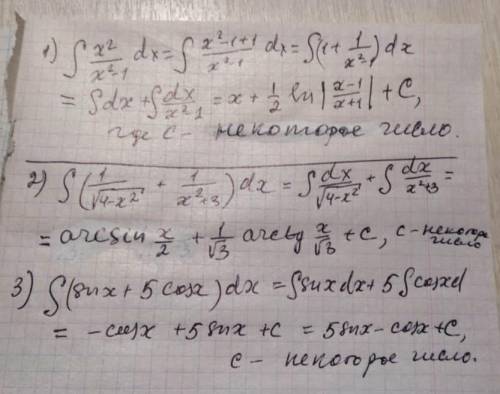 1) ∫ x²/(x²-1) dx = ∫ (x²-1+1)/(x²-1) dx = ∫(1 + 1/(x²-1)) dx
= ∫dx + ∫ dx/(x²-1) = x + 1/2 ln |(x-1)/(x+1)| + C,
где C - некоторое число.
2) ∫(1/√(4-x²) + 1/(x²+3)) dx = ∫ dx/√(4-x²) + ∫ dx/(x²+3) =
= arcsin x/2 + 1/√3 arctg x/√3 + C, C - некоторое число
3) ∫(sinx + 5 cosx) dx = ∫sinx dx + 5 ∫cosx d
= -cosx + 5 sinx + C = 5 sinx - cosx + C,
C - некоторое число.